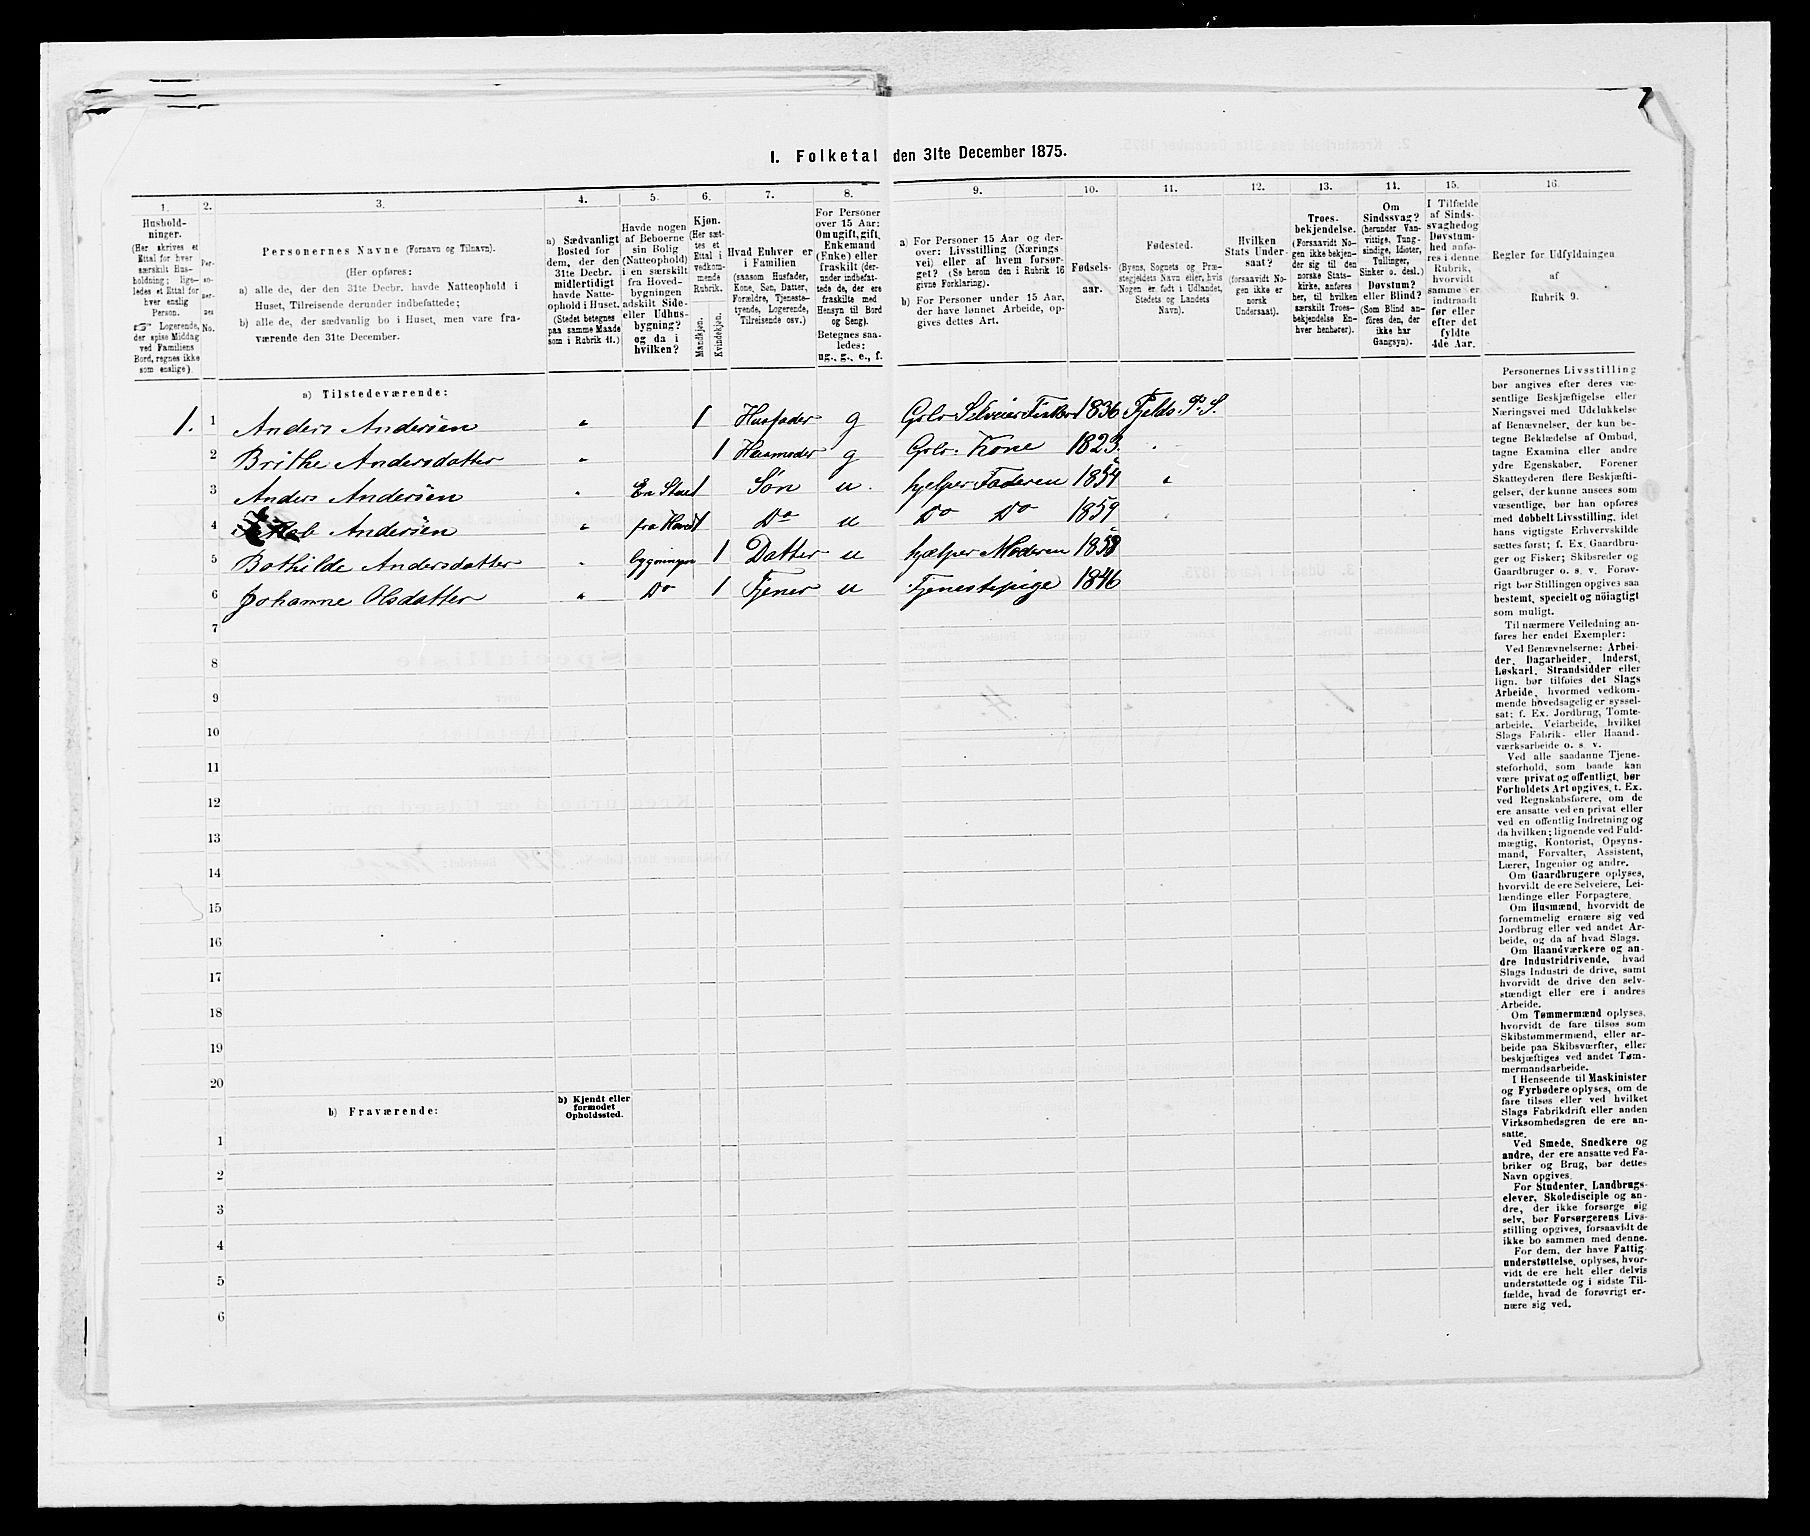 I. Folketal den 31te December 1875.
1. 2. 3. 4. 5. 6. 7. 8. 9. 10. 11. 12. 13. 14. 15. 16.
Husholdninger.
(Her skrives et
Ettal for hver
særskilt Husholdning;
ligeledes et Ettal for
hver enslig
Person.
☞ Logerende,
der spise Middag
ved Familiens
Bord, regnes ikke
som enslige).
Personernes No.
Personernes Navne (Fornavn og Tilnavn).
(Her opføres:
a) alle de, der den 31te Decbr. havde Natteophold i
Huset, Tilreisende derunder indbefattede;
b) alle de, der sædvanlig bo i Huset, men vare fraværende
den 31te December.
a) Sædvanligt
Bosted for
dem, der den
31te Decbr.
midlertidigt
havde Natteophold
i Huset.
(Stedet betegnes
paa samme Maade
som i Rubrik 11.)
Havde nogen
af Beboerne
sin Bolig
(Natteophold)
i en særskilt
fra Hovedbygningen
adskilt Side-
eller Udhusbygning?
og da i
hvilken?
Kjøn.
(Her sættes
et
Ettal i
vedkommende
Rubrik.
Mandkjøn.
Kvindekjøn.
Hvad Enhver er
i Familien
(saasom Husfader,
Kone, Søn, Datter,
Forældre, Tjenestetyende,
Logerende,
Tilreisende osv.)
For Personer
over 15 Aar:
Om ugift, gift,
Enkemand
(Enke) eller
fraskilt (derunder
indbefattede
de, der ere
fraskilte med
Hensyn til Bord
og Seng).
Betegnes saaledes:
ug., g., e., f.
a) For Personer 15 Aar og derover:
Livsstilling (Næringsvei)
eller af hvem forsørget?
(Se herom den i Rubrik 16
givne Forklaring).
b) For Personer under 15 Aar,
der have lønnet Arbeide, opgives
dettes Art.
Fødselsaar.
Fødested.
(Byens, Sognets og Præstegjeldets
Navn eller, hvis
Nogen er født i Udlandet,
Stedets og Landets
Navn).
Hvilken
Stats Undersaat?
(forsaavidt Nogen
ikke er
norsk
Undersaat).
Troesbekjendelse.
(Forsaavidt Nogen
ikke bekjender
sig til den
norske Statskirke,
anføres
her, til hvilken
særskilt Troesbekjendelse
Enhver
henhører).
Om
Sindssvag?
(herunder Vanvittige,
Tungsindige,
Idioter,
Tullinger,
Sinker o. desl.)
Døvstum?
eller Blind?
(Som Blind anføres
den, der
ikke har
Gangsyn).
I Tilfælde
af Sindssvaghed
og
Døvstumhed
anføres
i denne
Rubrik,
hvorvidt
samme er
indtraadt
før eller
efter det
fyldte
4de Aar.
Regler for Udfyldningen
af
Rubrik 9.
a) Tilstedeværende:
1. 1 Anders Andersen " 1 Husfader g Gbr. Selveier Fisker 1836 Fjelds P. S.
2 Brithe Andersdatter " 1 Husmoder g Gbr. Kone 1823 "
3 Anders Andersen " En Stue 1 Søn u. hjelper Faderen 1854 "
4 Andersen " fra Hoved 1 Do u Do Do 1859 "
5 Bothilde Andersdatter " bygningen 1 Datter u hjælper Moderen 1858 "
6 Johanne Olsdatter " Do 1 Tjener u Tjenestepige 1846
7
8
9
10
11
12
13
14
15
16
17
18
19
20
b) Fraværende:
b) Kjendt eller
formodet
Opholdssted.
1
2
3
4
5
6
Personernes Livsstilling
bør angives efter deres væsentlige
Beskjæftigelse eller
Næringsvei med Udelukkelse
af Benævnelser, der kun betegne
Beklædelse af Ombud,
tagne Examina eller andre
ydre Egenskaber. Forener
Skatteyderen flere Beskjæftigelser,
der kunne ansees som
væsentlige, bør han opføres
med dobbelt Livsstilling, idet
hans vigtigste Erhvervskilde
sættes først; f. Ex. Gaardbruger
og Fisker; Skibsreder og
Gaardbruger o. s. v. Forøvrigt
bør Stillingen opgives saa
bestemt, specielt og nöiagtigt
som muligt.
Til nærmere Veiledning anføres
her endel Exempler:
Ved Benævnelserne: Arbeider,
Dagarbeider, Inderst,
Løskarl, Strandsidder eller
lign. bør tilføies det Slags
Arbeide, hvormed vedkommende
hovedsagelig er sysselsat;
f. Ex. Jordbrug, Tomtearbeide,
Veiarbeide, hvilket
Slags Fabrik- eller Haandværksarbeide
o. s. v.
Ved alle saadanne Tjenesteforhold,
som baade kan
være privat og offentligt, bør
Forholdets Art opgives, t. Ex.
ved Regnskabsførere, om de
ere ansatte ved en privat eller
ved en offentlig Indretning og
da hvilken; lignende ved Fuldmægtig,
Kontorist, Opsynsmand,
Forvalter, Assistent,
Lærer, Ingeniør og andre.
Om Gaardbrugere oplyses,
hvorvidt de ere Selveiere, Leilændinge
eller Forpagtere.
Om Husmænd, hvorvidt de
fornemmelig ernære sig ved
Jordbrug eller ved andet Arbeide,
og da af hvad Slags.
Om Haandværkere og andre
Industridrivende, hvad
Slags Industri de drive, samt
hvorvidt de drive den selvstændigt
eller ere i andres
Arbeide.
Om Tømmermænd oplyses,
hvorvidt de fare tilsøs som
Skibstømmermænd, eller arbeide
paa Skibsværfter, eller
beskjæftiges ved andet Tømmermandsarbeide.
I Henseende til Maskinister
og Fyrbødere oplyses, om de
fare tilsøs eller ved hvilket
Slags Fabrikdrift eller anden
Virksomhedsgren de ere ansatte.
Ved Smede, Snedkere og
andre, der ere ansatte ved Fabriker
og Brug, bør dettes
Navn opgives.
For Studenter, Landbrugselever,
Skoledisciple og andre,
der ikke forsørge sig
selv, bør Forsørgerens Livsstilling
opgives, forsaavidt de
ikke bo sammen med denne.
For dem, der have Fattigunderstøttelse,
oplyses, hvorvidt
de ere helt eller delvis
understøttede og i sidste Tilfælde,
hvad de forøvrigt ernære
sig ved.